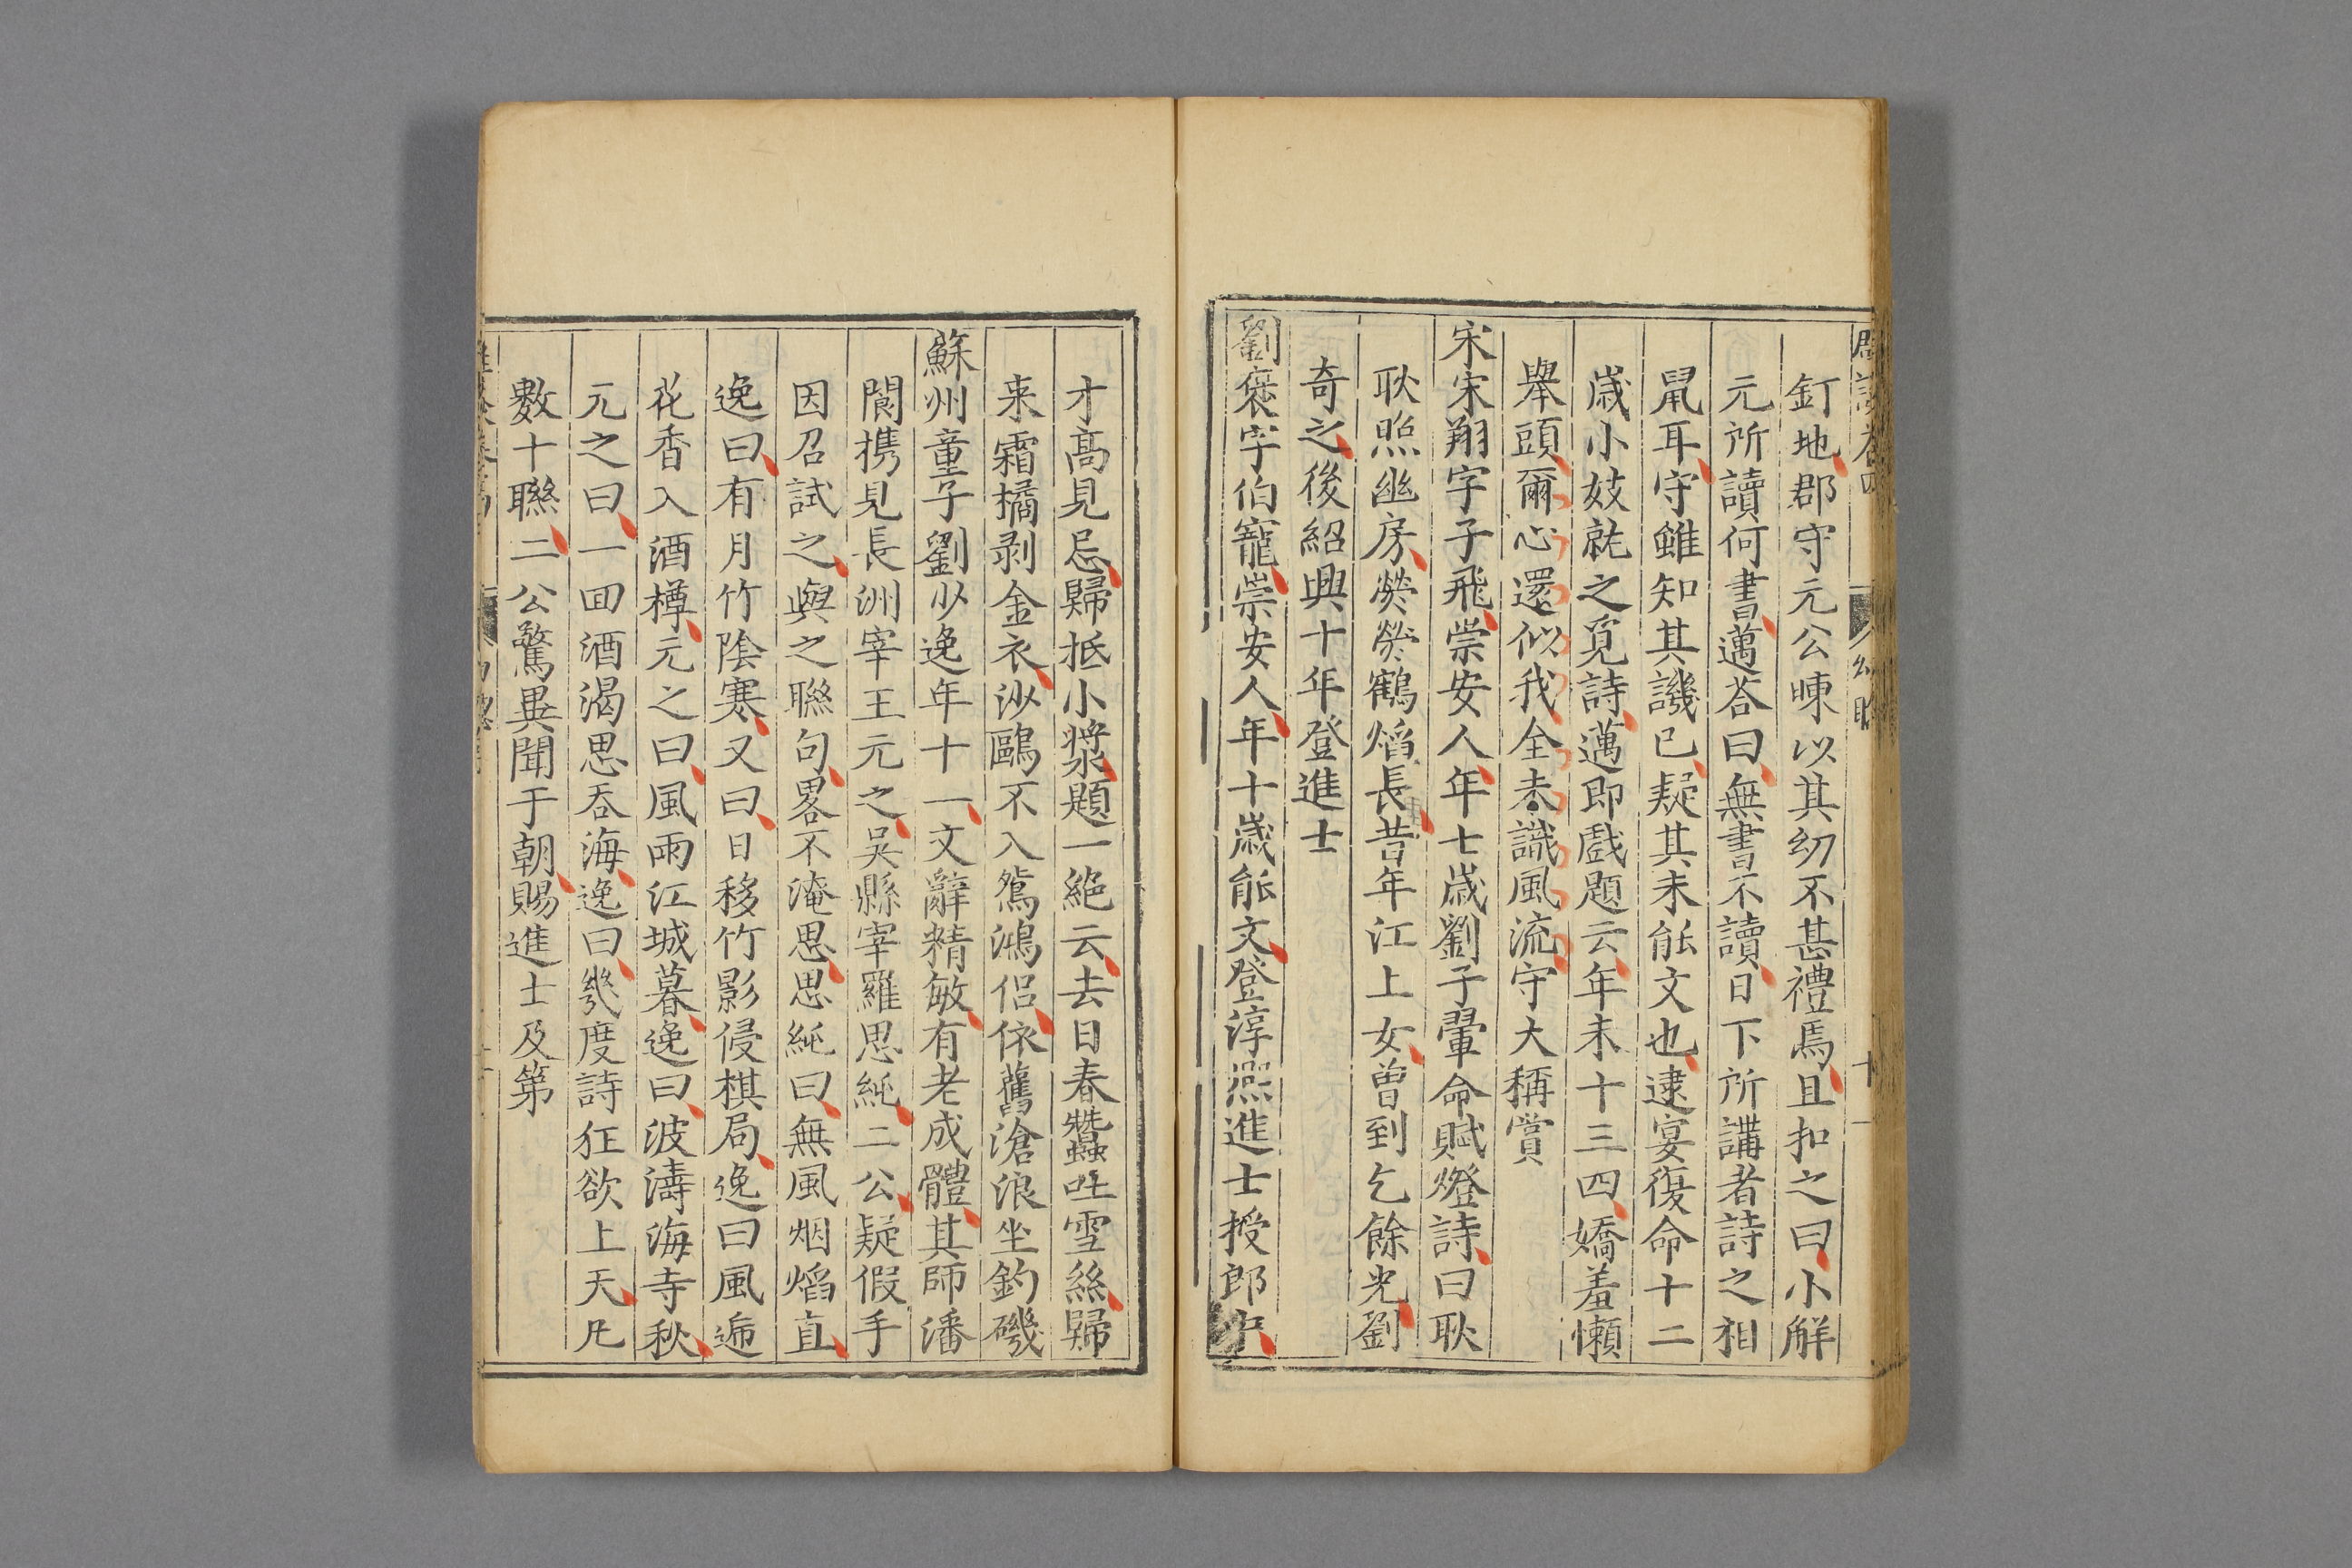 釘地郡守元公暕以其幼不甚禮焉且扣之曰小觧
元所讀何書邁荅曰無書不讀日下所講者詩之相
鼠耳守雖知其譏已疑其未能文也逮宴復命十二
歳小妓就之覓詩邁即戲題云年未十三四嬌羞懶
舉頭爾心還似我全未識風流守大稱賞
宋宋翔字子飛崇安人年七歳劉子翬命賦燈詩曰耿
耿照幽房熒熒鶴焰長昔年江上女曽到乞餘光劉
奇之後紹興十年登進士
劉褒字伯寵崇安人年十歳能文登淳熙進士授郎中
才髙見忌歸抵小漿題一絶云去日春蠶吐雪絲歸
来霜橘剥金衣沙鷗不入鴛鴻侣依舊滄浪坐釣磯
蘇州童子劉少逸年十一文辭精敏有老成體其師潘
閬携見長洲宰王元之吴縣宰羅思純二公疑假手
因召試之與之聯句畧不淹思思純曰無風烟焰直
逸曰有月竹陰寒又曰日移竹影侵棋局逸曰風遞
花香入酒樽元之曰風雨江城暮逸曰波濤海寺秋
元之曰一回酒渴思吞海逸曰幾度詩狂欲上天凡
數十聯二公驚異聞于朝賜進士及第